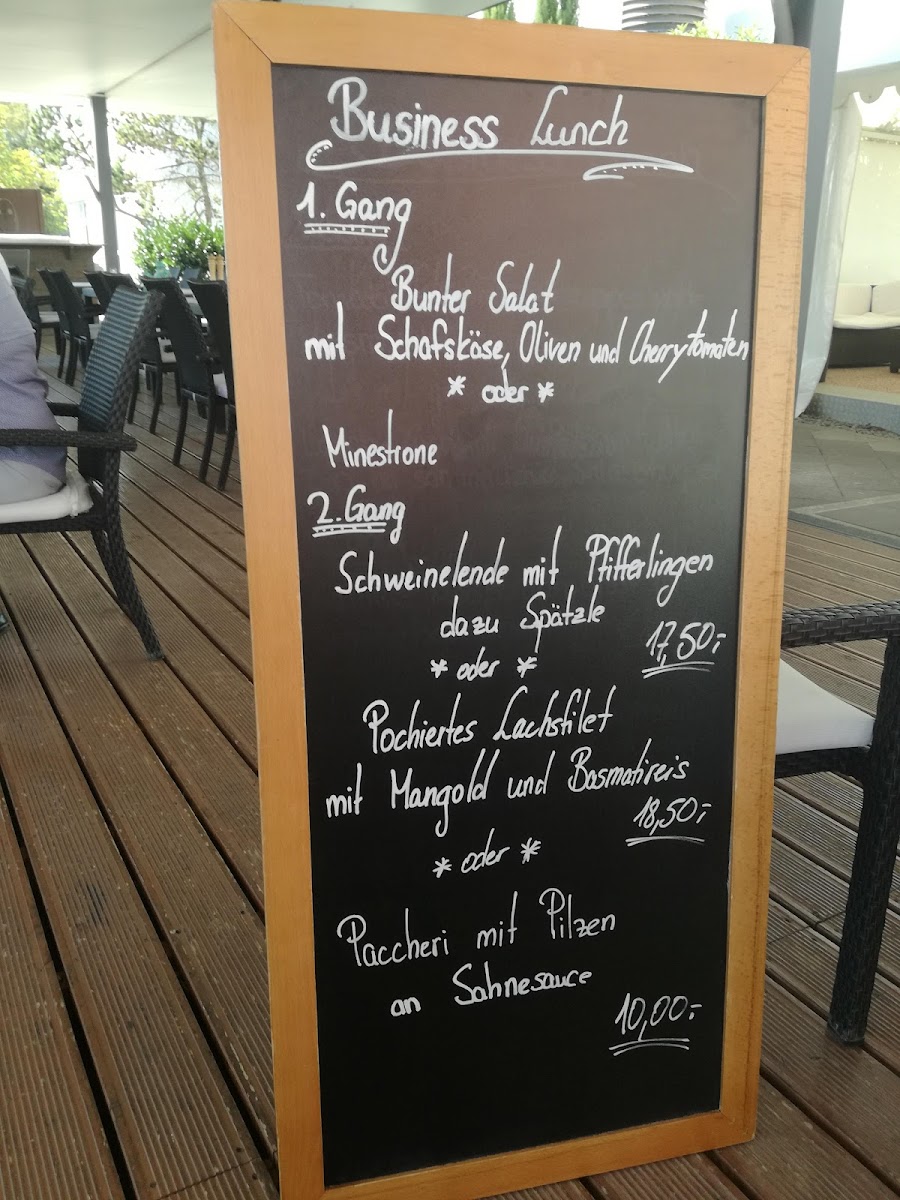 Business Lunch
1. Gang
Bunter Salat
mit Schafskäse, Oliven und Cherrytomaten
* oder *
Minestrone
2. Gang
Schweinelende mit Pfifferlingen
dazu Spätzle
17,50,-
* oder *
Pochiertes Lachsfilet
mit Mangold und Basmatireis
18,50,-
* oder *
Paccheri mit Pilzen
an Sahnesauce
10,00,-